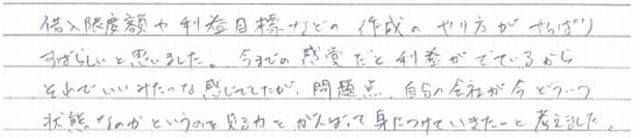 借入限度額や利益目標などの作成のやり方がやっぱり
すばらしいと思いました。今までの感覚だと利益がでているから
それでいいみたいな感じでしたが、問題点、自分の会社が今どういう
状態なのかというのを見る力をがんばって身につけていきたいと考えました。